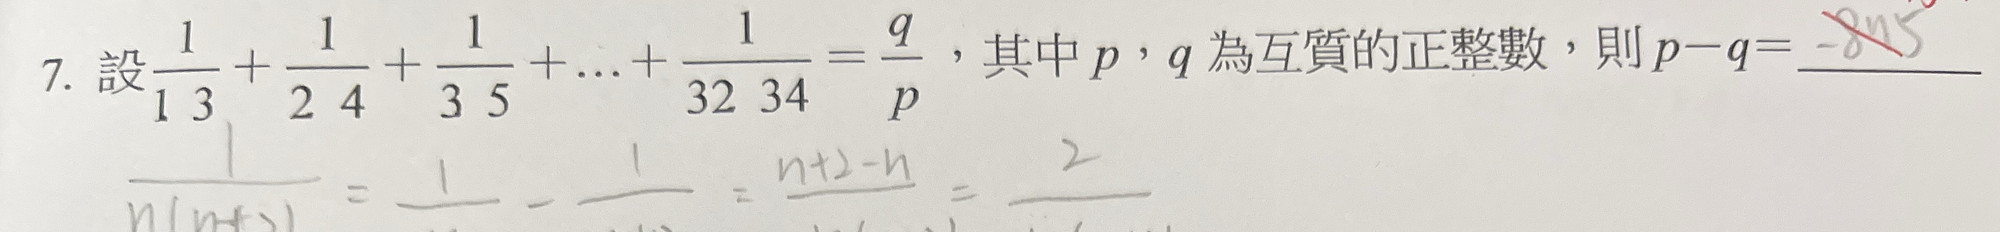 7. 設 1/1 3 + 1/2 4 + 1/3 5 + ... + 1/32 34 = q/p，其中 p，q 為互質的正整數，則 p－q=
1/n(n+2) = 1/ - 1/ = n+2-n/ = 2/